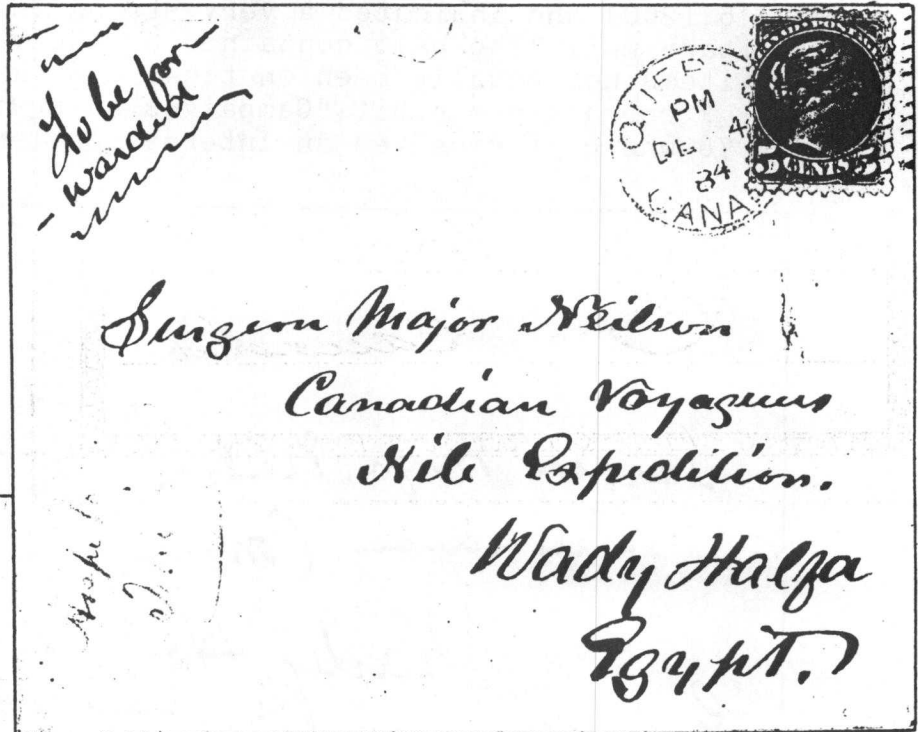 To be for
- warded
QUEBEC
PM
DE 4
84
CANADA
5 CENTS 5
Surgeon Major Neilson
Canadian Voyageurs
Nile Expedition.
Wady Halfa
Egypt.